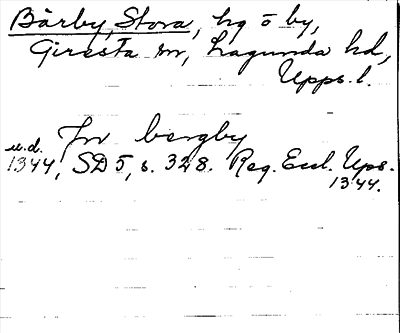 Bärby, Stora, hg o by,
Giresta sn, Lagunda hd,
Upps. l.
Jn bergby
u.d.
1344, SD 5, s. 328. Reg. Eccl. Ups.
1344.